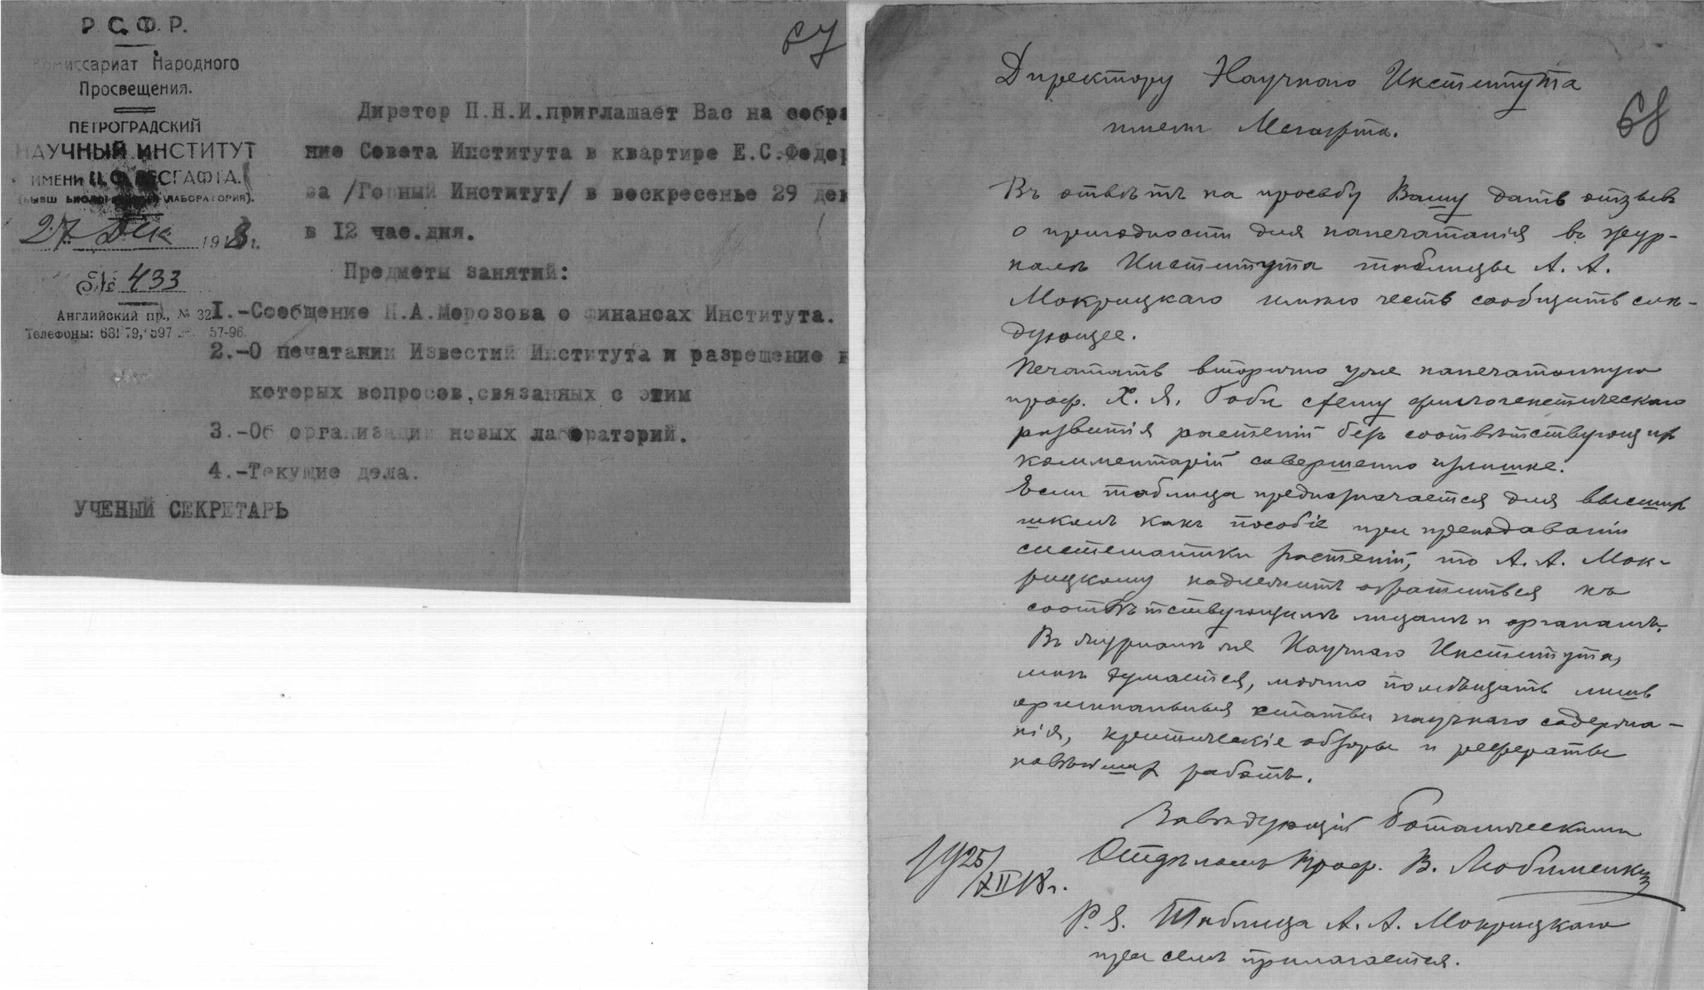 67
Р. С. Ф. Р.
Комиссариат Народного
Просвещения.
ПЕТРОГРАДСКИЙ
НАУЧНЫЙ ИНСТИТУТ
ИМЕНИ П. Ф. ЛЕСГАФТА.
(БЫВШ БИОЛОГИЧЕСКАЯ ЛАБОРАТОРИЯ).
27 Дек 1918 г.
№ 433
Английский пр., № 32
Телефоны: 57-96.
Дирэтор П.Н.И.приглашает Вас на собра
ние Совета Института в квартире Е.С.Федор
ва /Горный Институт/ в воскресенье 29 дек
в 12 час.дня.
Предметы занятий:
1.-Сообщение Н.А.Морозова о финансах Института.
2.-О печатании Известий Института и разрешение н
которых вопросов,связанных с этим
3.-Об организации новых лабораторий.
4.-Текущие дела.
УЧЕНЫЙ СЕКРЕТАРЬ
68
Директору Научнаго Института
имени Лесгафта.
Въ отвѣтъ на просьбу Вашу дать отзывъ
о пригодности для напечатанія въ жур-
налѣ Института таблицы А. А.
Мокрицкаго имѣю честь сообщить слѣ-
дующее.
Печатать вторично уже напечатанную
проф. Х. Я. Гоби схему филогенетическаго
развитія растеній безъ соотвѣтствующихъ
комментарій совершенно излишне.
Если таблица предназначается для высшихъ
школъ какъ пособіе при преподаваніи
систематики растеній, то А. А. Мок-
рицкому надлежитъ обратиться къ
соотвѣтствующимъ лицамъ и органамъ.
Въ журналѣ же Научнаго Института,
мнѣ думается, можно помѣщать лишь
оригинальныя статьи научнаго содержа-
нія, критическіе обзоры и рефераты
новѣйшихъ работъ.
Завѣдующій Ботаническимъ
Отдѣломъ Проф. В. Любименко
19 25/XII 18 г.
P. S. Таблица А. А. Мокрицкаго
при семъ прилагается.